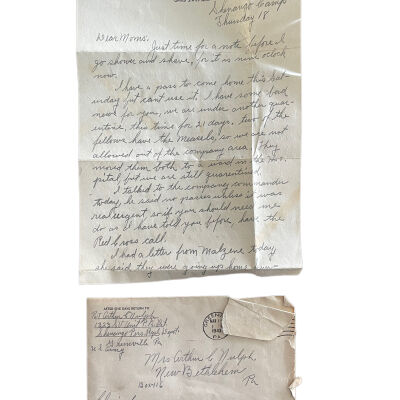 Shenango Camp
Thursday 18
Dear Moms.
Just time for a note before I
go shower and shave, for it is nine oclock
now.
I have a pass to come home this Sat-
urday but cant use it. I have some bad
news for you, we are under another quar-
entine, this time for 21 days. Two of the
fellows have the Measels, so we are not
allowed out of the company area. They
moved them both to a ward in the Hos-
pital but we are still quarentined.
I talked to the company commander
today, he said no passes unless it was
real urgent, so if you should need me
do as I have told you before, have the
Red Cross call.
I had a letter from Malzene today,
she said they were going up home
AFTER FIVE DAYS RETURN TO
Pvt Arthur C Nulph
1323 S.U.
Shenango Pers Repl Depot.
Greenville Pa
U.S. Army
GREENVILLE
PA
Mrs Arthur C. Nulph
New Bethlehem
Box 116
Pa